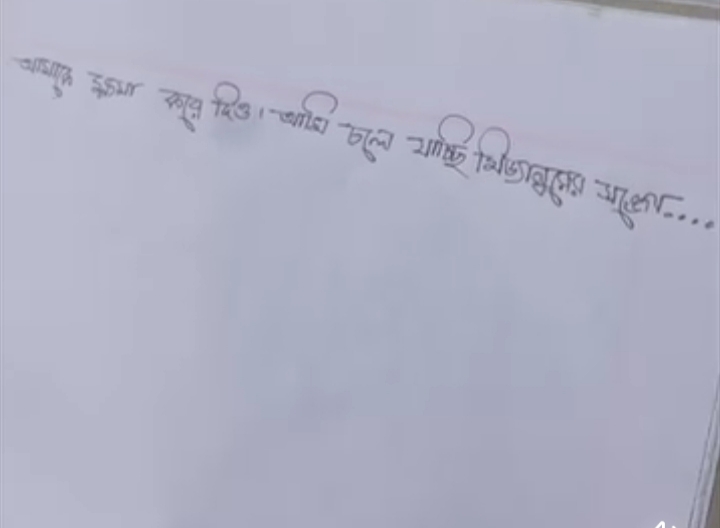 আমাকে ক্ষমা করে দিও। আমি চলে যাচ্ছি মিজানুরের সঙ্গে....